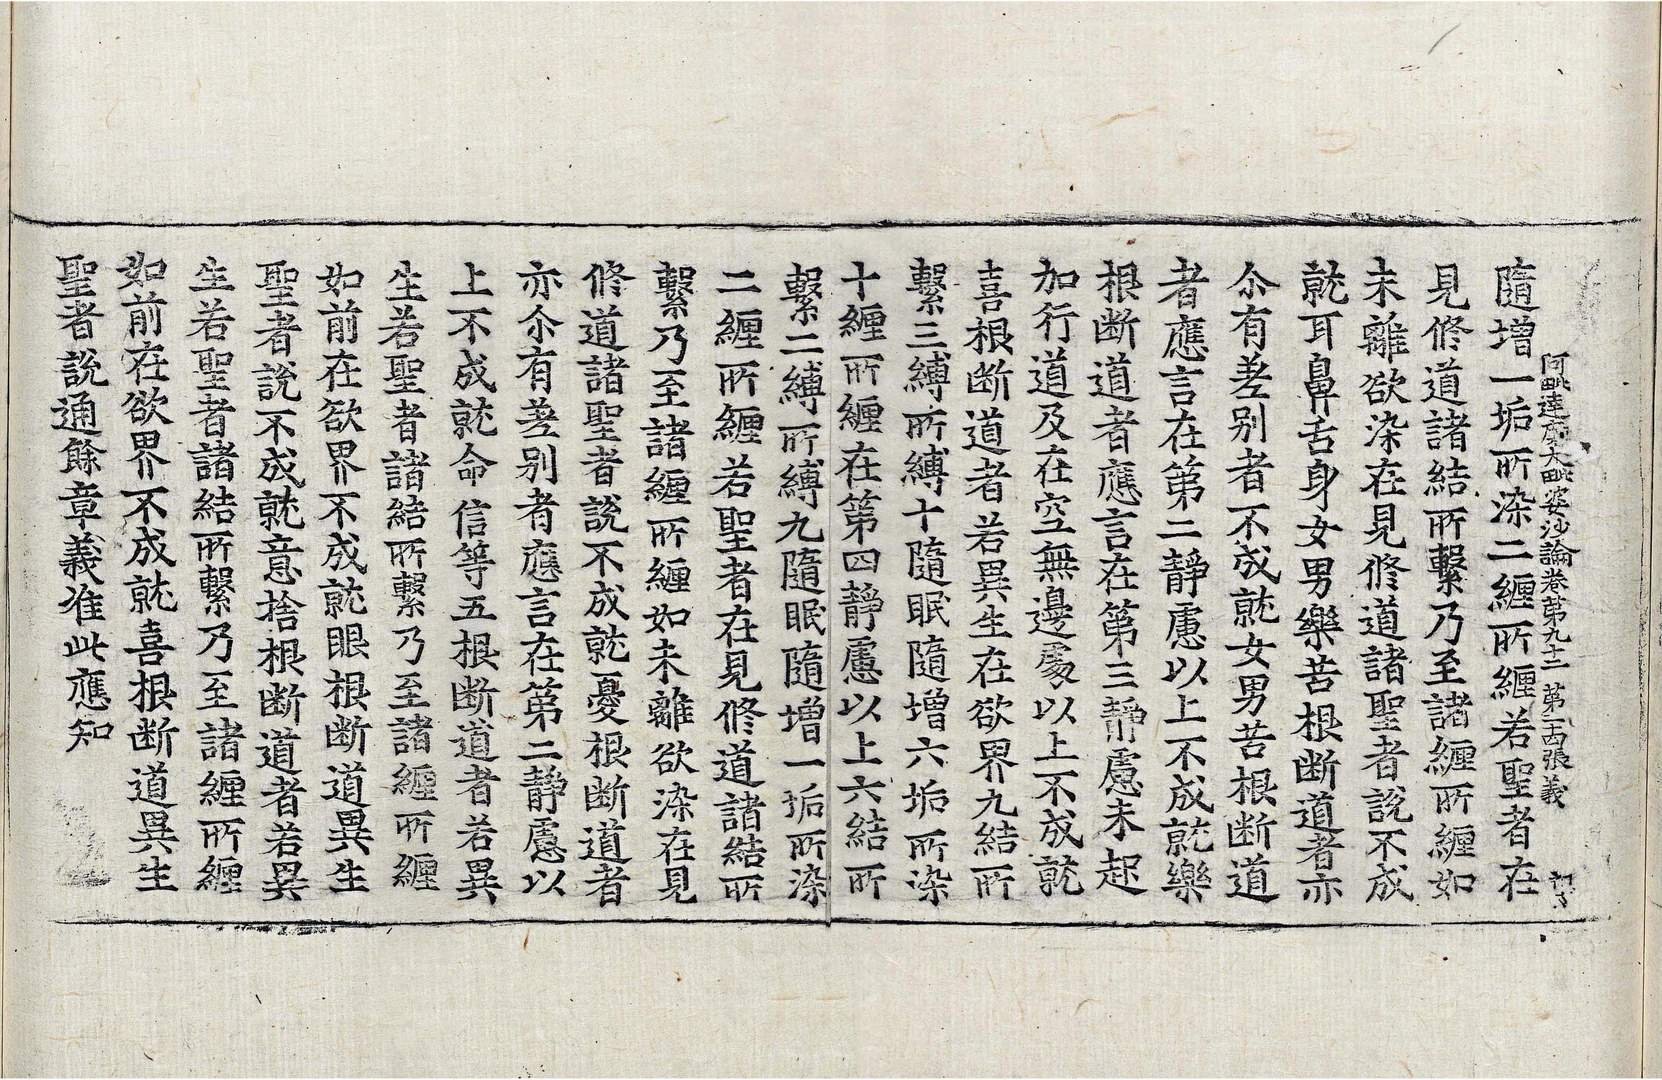 阿毗達磨大毗婆沙論卷第九十二 第二十四張 義
隨增一垢所染二纏所纏若聖者在
見修道諸結所繫乃至諸纏所纏如
未離欲染在見修道諸聖者說不成
就耳鼻舌身女男樂苦根断道者亦
尒有差別者不成就女男苦根断道
者應言在第二靜慮以上不成就樂
根断道者應言在第三靜慮未起
加行道及在空無邊處以上不成就
喜根断道者若異生在欲界九結所
繫三縛所縛十隨眠隨增六垢所染
十纏所纏在第四靜慮以上六結所
繫二縛所縛九隨眠隨增一垢所染
二纏所纏若聖者在見修道諸結所
繫乃至諸纏所纏如未離欲染在見
修道諸聖者說不成就憂根断道者
亦尒有差別者應言在第二靜慮以
上不成就命信等五根断道者若異
生若聖者諸結所繫乃至諸纏所纏
如前在欲界不成就眼根断道異生
聖者說不成就意捨根断道者若異
生若聖者諸結所繫乃至諸纏所纏
如前在欲界不成就喜根断道異生
聖者說通餘章義准此應知